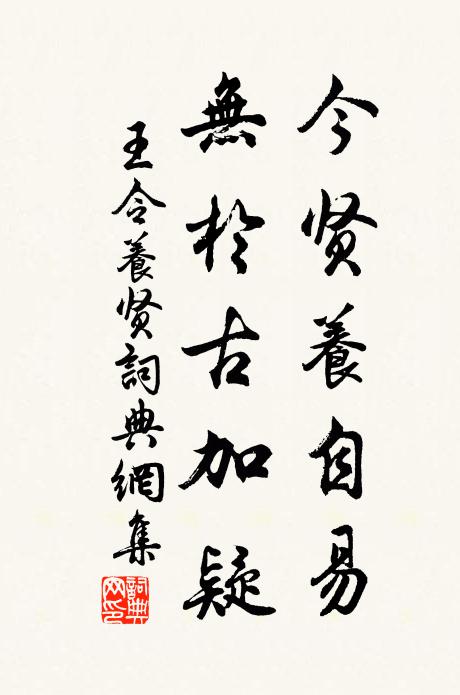 今贤養自易
無於古加疑
王令養贤詞典網集
詞典網印